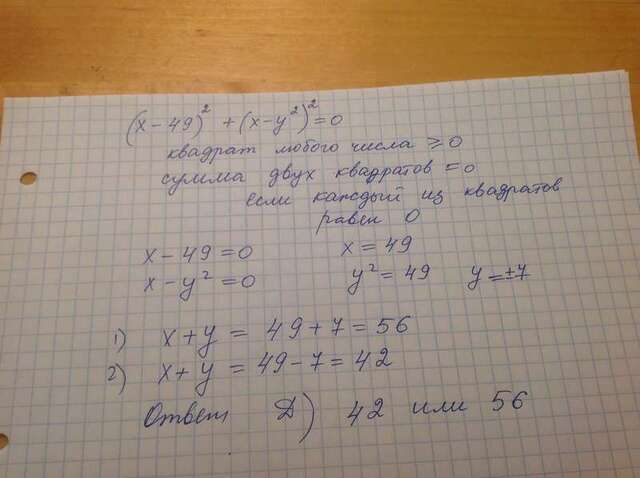 (x-49)² + (x-y²)² = 0
квадрат любого числа ≥ 0
сумма двух квадратов = 0
если каждый из квадратов
равен 0
x - 49 = 0 x = 49
x - y² = 0 y² = 49 y = ±7
1) x + y = 49 + 7 = 56
2) x + y = 49 - 7 = 42
Ответ Д) 42 или 56